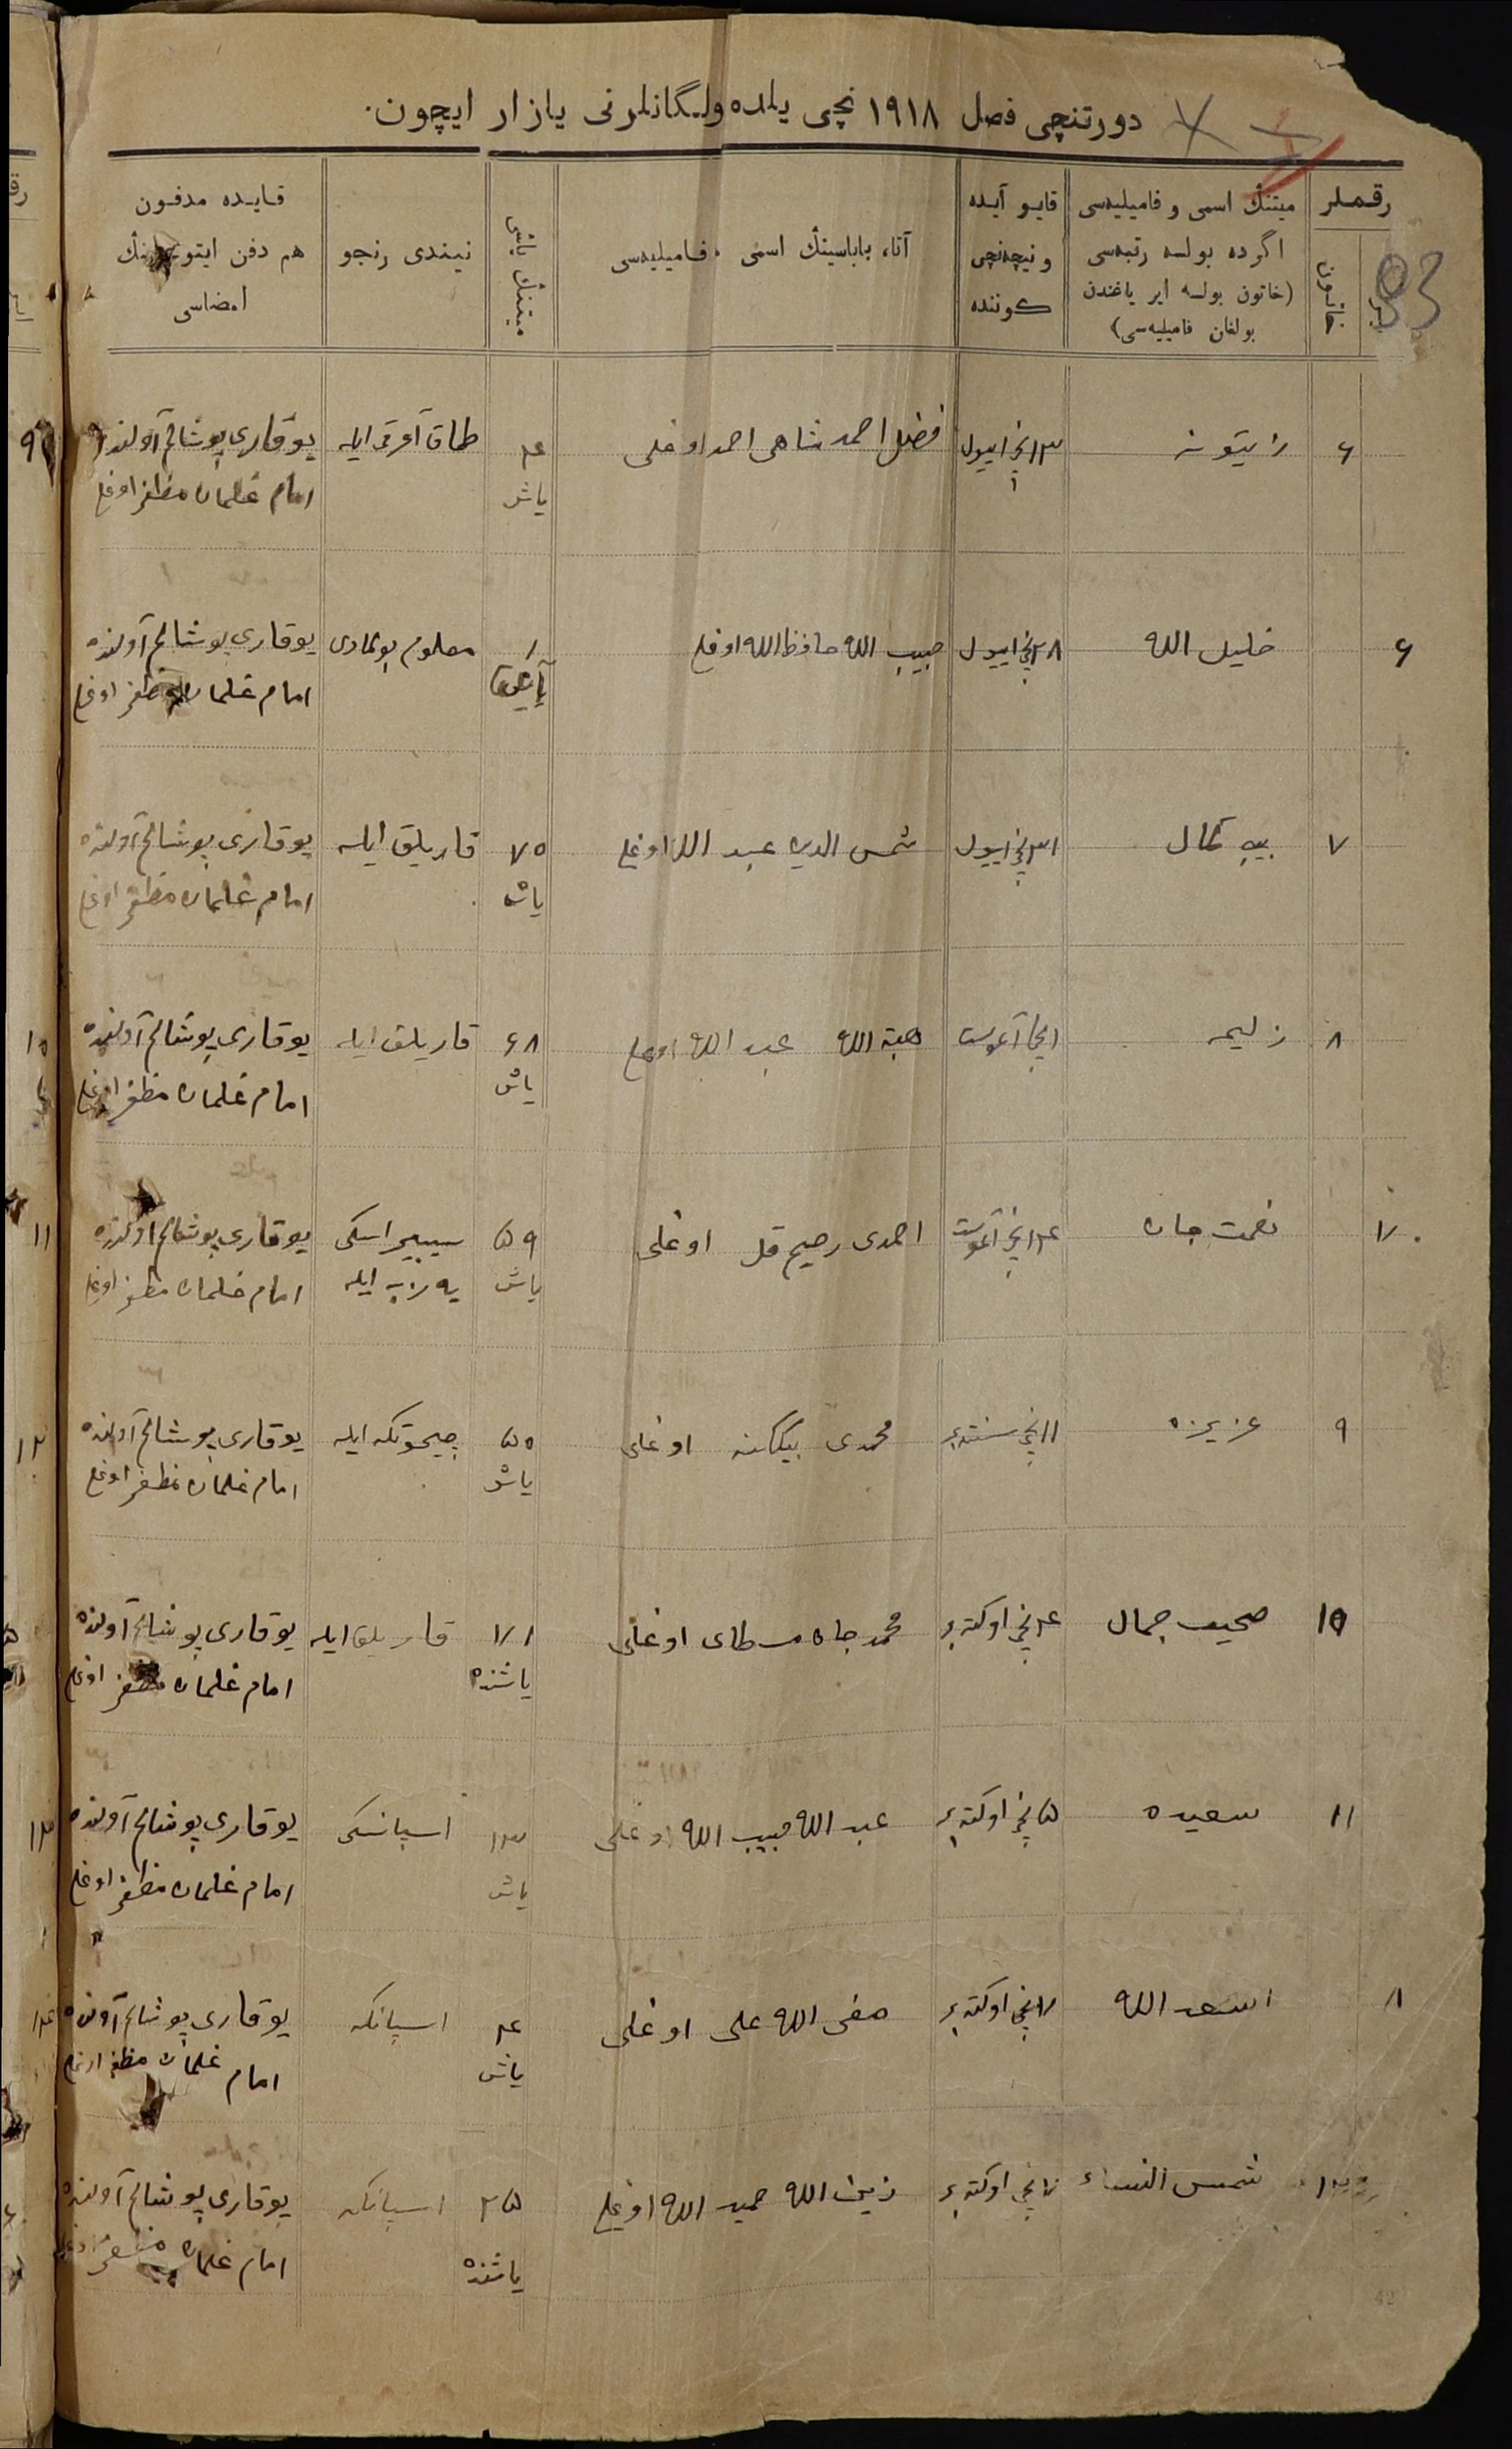 دورتنچی فصل ۱۹۱۸ نچی یلده ولیگانلرنی یازار ایچون.
83
رقملر
میتنڭ اسمی و فامیلیه‌سی
اگرده بولسه رتبه‌سی
(خاتون بولسه ایر یاغندن
بولغان فامیلیه‌سی)
قایو آیده
و نیچه‌نچی
کوننده
آتا، باباسینڭ اسمی، فامیلیه‌سی
میتنڭ یاشی
نیندی رنجو
قایده مدفون
هم دفن ایتو
امضاسی
۶ زیتونه ۱۳نچی اییول فضل احمد شاهی احمد اوغلی ۴ یاش طماق آغرقی ایله یوقاری پوشالم آولنده
امام غلمان مظفر اوغلی
۶ خلیل الله ۲۸نچی اییول حبیب الله حافظ الله اوغلی ۱ معلوم بولمادی یوقاری پوشالم آولنده
امام غلمان مظفر اوغلی
۷ بیبی کمال ۳۱نچی اییول شمس الدین عبد الله اوغلی ۷۵ یاش قاریلق ایله یوقاری پوشالم آولنده
امام غلمان مظفر اوغلی
۸ زلیمه آغوست هبة الله عبد الله اوغلی ۶۸ یاش قاریلق ایله یوقاری پوشالم آولنده
امام غلمان مظفر اوغلی
۷ نعمت جان ۱۴نچی آغوست احمدی رحیم قل اوغلی ۵۹ یاش سیبیر اسکی یوقاری پوشالم آولنده
ایله امام غلمان مظفر اوغلی
۹ عزیزه ۱۱نچی سنتەبر محمدی اوغلی ۵۰ یاش چیحوتکه ایله یوقاری پوشالم آولنده
امام غلمان مظفر اوغلی
۱۰ صحیب جمال ۴نچی اوکتەبر محمد جان اوغلی ۷۱ یاشنده قاریلق ایله یوقاری پوشالم آولنده
امام غلمان مظفر اوغلی
۱۱ سعیده ۵نچی اوکتەبر عبد الله حبیب الله اوغلی ۱۳ یاش اسپانسکی یوقاری پوشالم آولنده
امام غلمان مظفر اوغلی
۸ اسعد الله اوکتەبر صفی الله علی اوغلی ۴ یاش اسپانکه یوقاری پوشالم آولنده
امام غلمان مظفر اوغلی
۱۲ شمس النساء اوکتەبر زین الله حمید الله اوغلی ۲۵ یاشنده اسپانکه یوقاری پوشالم آولنده
امام غلمان مظفر اوغلی